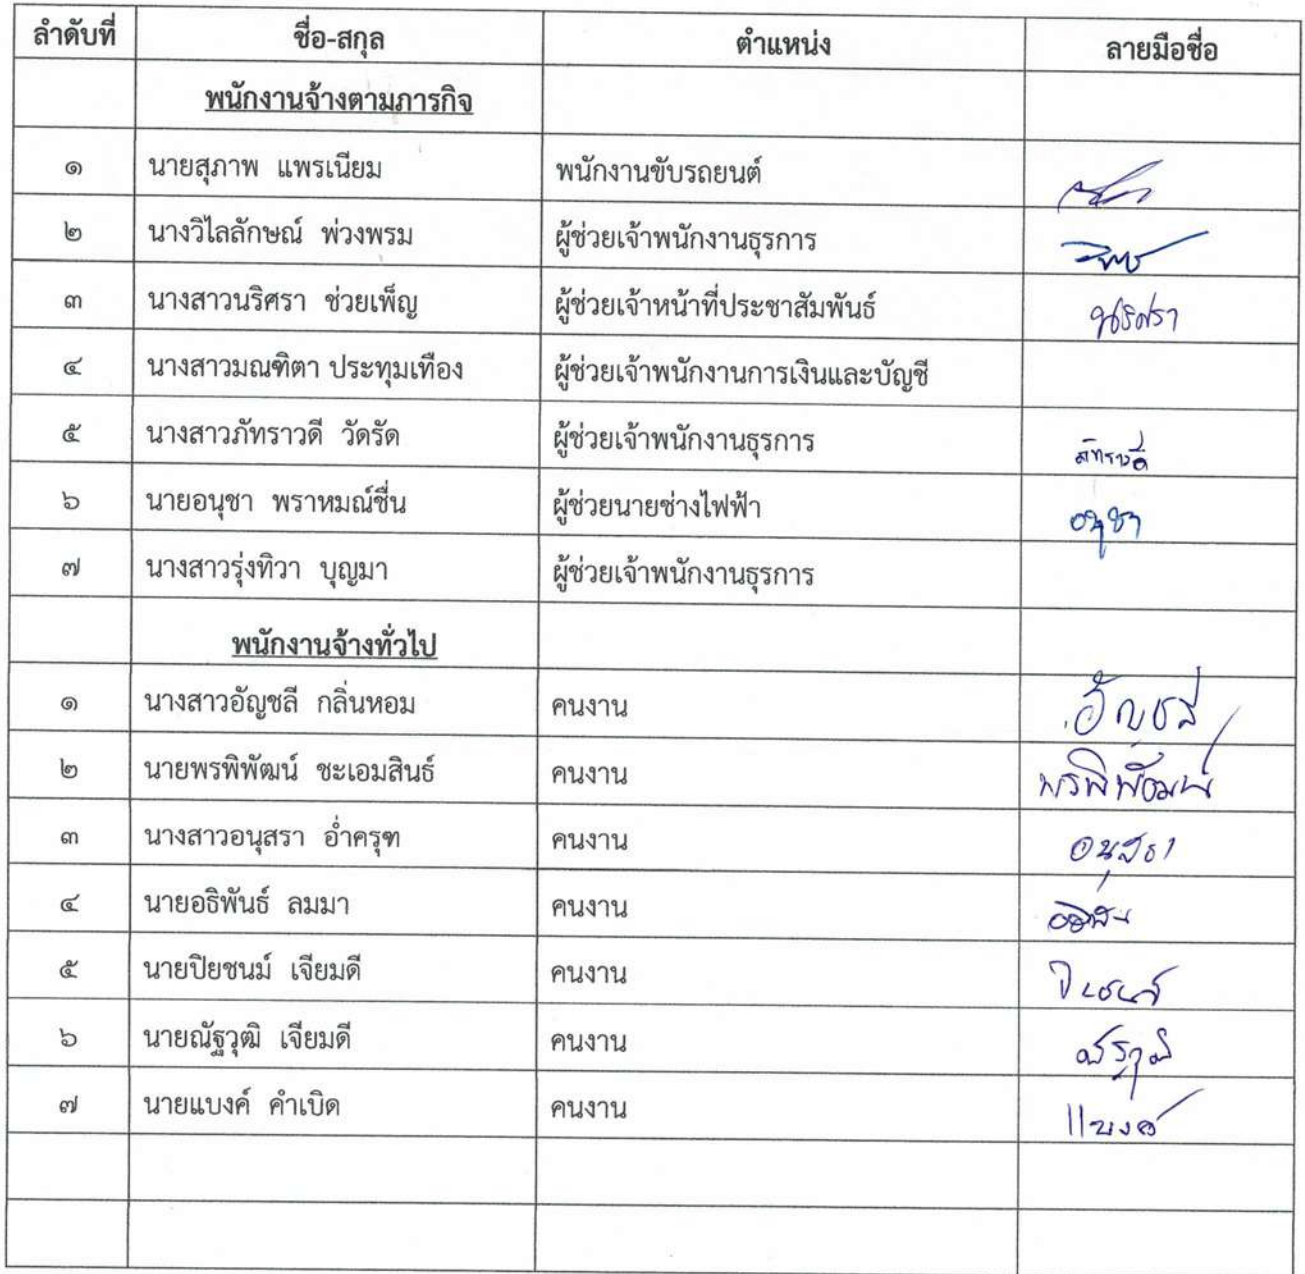 ลำดับที่ ชื่อ-สกุล ตำแหน่ง ลายมือชื่อ
พนักงานจ้างตามภารกิจ
๑ นายสุภาพ แพรเนียม พนักงานขับรถยนต์
๒ นางวิไลลักษณ์ พ่วงพรม ผู้ช่วยเจ้าพนักงานธุรการ
๓ นางสาวนริศรา ช่วยเพ็ญ ผู้ช่วยเจ้าหน้าที่ประชาสัมพันธ์ นริศรา
๔ นางสาวมณฑิตา ประทุมเทือง ผู้ช่วยเจ้าพนักงานการเงินและบัญชี
๕ นางสาวภัทราวดี วัดรัด ผู้ช่วยเจ้าพนักงานธุรการ ภัทราวดี
๖ นายอนุชา พราหมณ์ชื่น ผู้ช่วยนายช่างไฟฟ้า อนุชา
๗ นางสาวรุ่งทิวา บุญมา ผู้ช่วยเจ้าพนักงานธุรการ
พนักงานจ้างทั่วไป
๑ นางสาวอัญชลี กลิ่นหอม คนงาน อัญชลี
๒ นายพรพิพัฒน์ ชะเอมสินธ์ คนงาน พรพิพัฒน์
๓ นางสาวอนุสรา อ่ำครุฑ คนงาน อนุสรา
๔ นายอธิพันธ์ ลมมา คนงาน
๕ นายปิยชนม์ เจียมดี คนงาน
๖ นายณัฐวุฒิ เจียมดี คนงาน
๗ นายแบงค์ คำเบิด คนงาน แบงค์